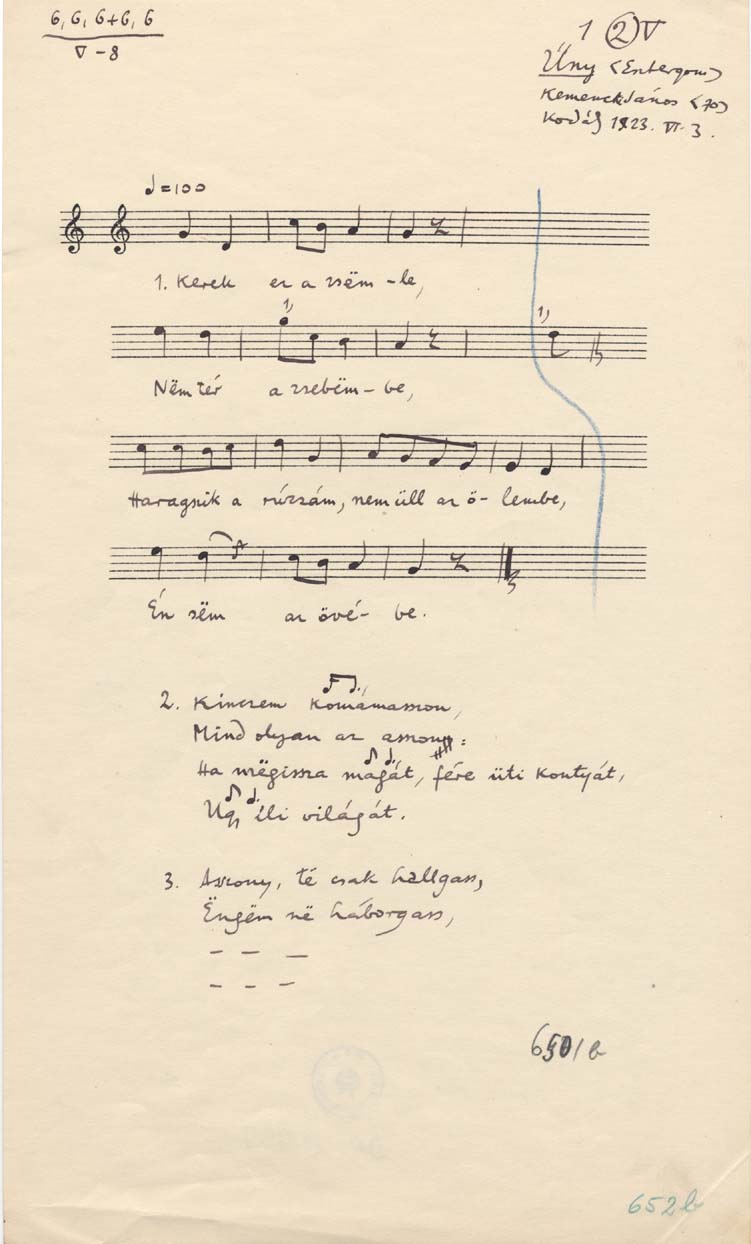 6, 6, 6+6, 6
V – 8
1 2 V
Úny (Esztergom)
Kemenck János (70)
Kodály 1923. VI. 3.
♩=100
1. Kerek ez a zsëm-le,
1)
1)
Nëm tér a zsebëm-be,
Haragszik a rúzsám, nem üll az ö-lembe,
Én sëm az övé-be.
2. Kincsem komámasszon,
Mind olyan az asszony:
Ha mëgissza magát, fére üti kontyát,
Úgy éli világát.
3. Asszony, të csak hallgass,
Ëngëm në háborgass,
– – –
– – –
652b